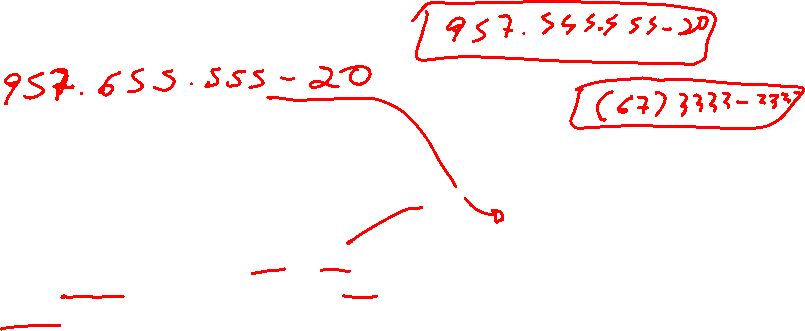 957.555.555-20
957.655.555-20
(67) 3333-3333